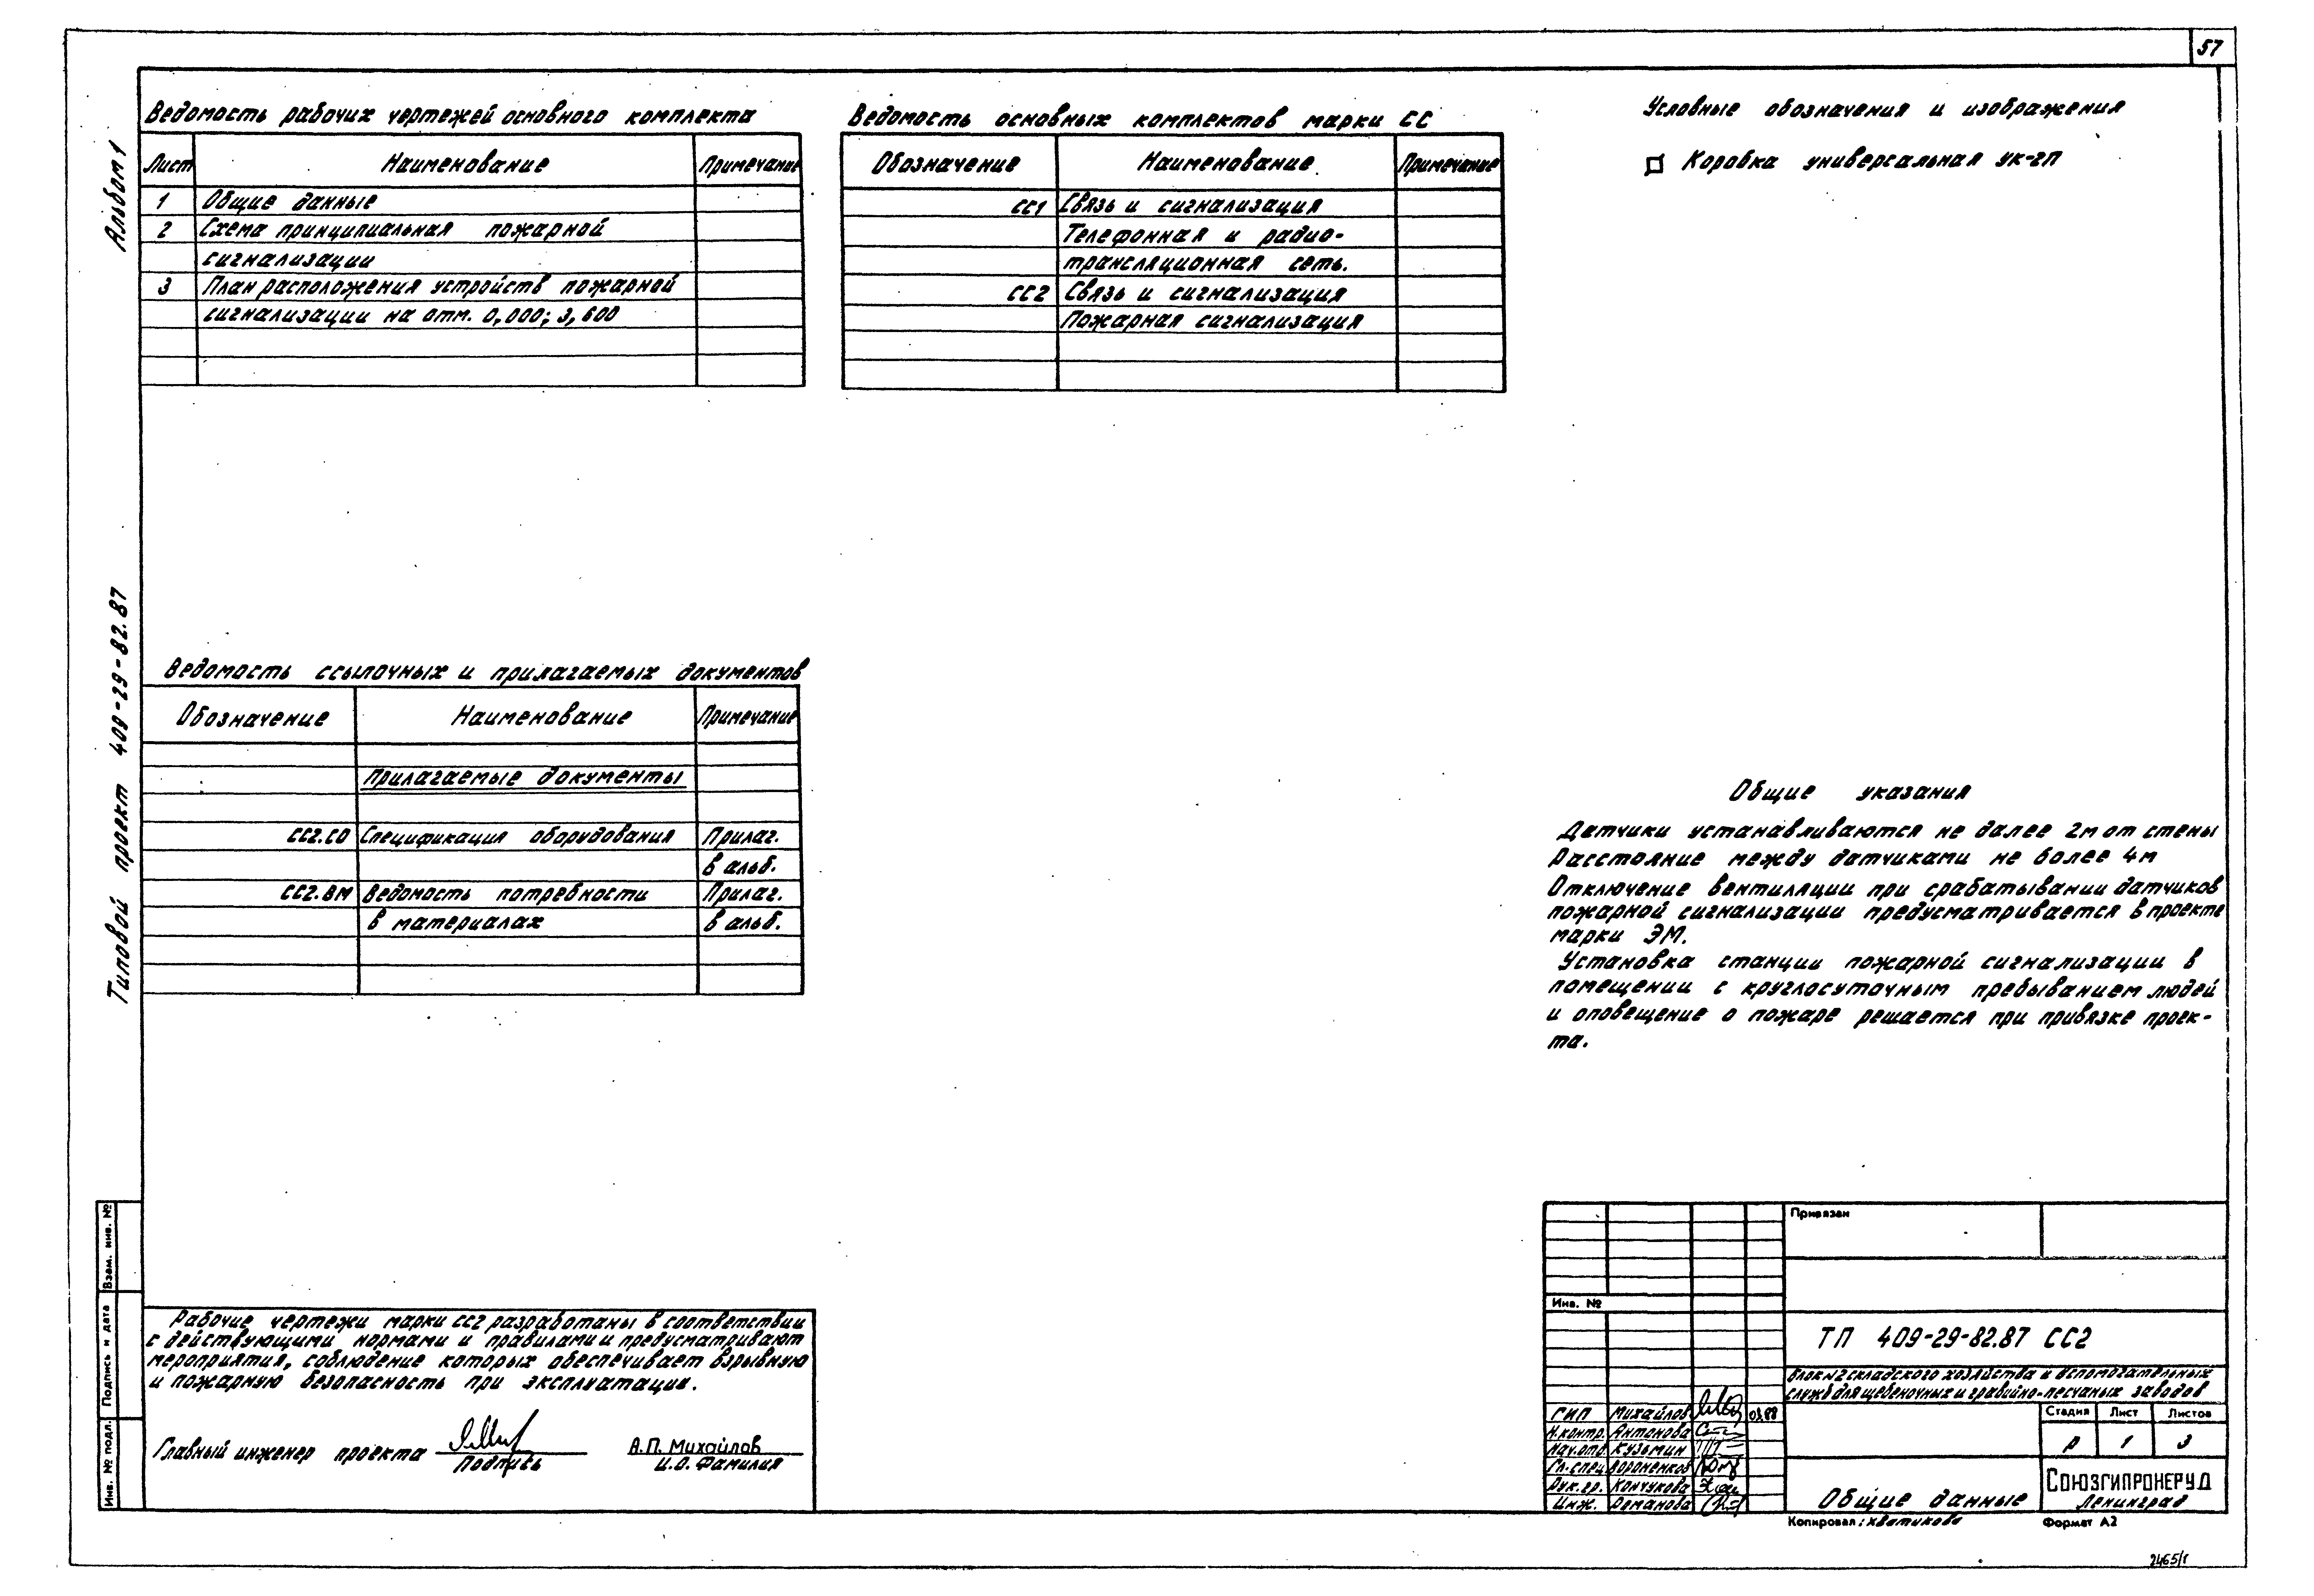 57
Альбом 1
Типовой проект 409-29-82.87
Ведомость рабочих чертежей основного комплекта
Лист Наименование Примечание
1 Общие данные
2 Схема принципиальная пожарной
сигнализации
3 План расположения устройств пожарной
сигнализации на отм. 0,000; 3,600
Ведомость основных комплектов марки СС
Обозначение Наименование Примечание
СС1 Связь и сигнализация
Телефонная и радио-
трансляционная сеть.
СС2 Связь и сигнализация
Пожарная сигнализация
Условные обозначения и изображения
Коробка универсальная УК-2П
Ведомость ссылочных и прилагаемых документов
Обозначение Наименование Примечание
Прилагаемые документы
СС2.СО Спецификация оборудования Прилаг.
в альб.
СС2.ВМ Ведомость потребности Прилаг.
в материалах в альб.
Общие указания
Датчики устанавливаются не далее 2м от стены
Расстояние между датчиками не более 4м
Отключение вентиляции при срабатывании датчиков
пожарной сигнализации предусматривается в проекте
марки ЭМ.
Установка станции пожарной сигнализации в
помещении с круглосуточным пребыванием людей
и оповещение о пожаре решается при привязке проек-
та.
Взам. инв. №
Подпись и дата
Инв. № подл.
Рабочие чертежи марки СС2 разработаны в соответствии
с действующими нормами и правилами и предусматривают
мероприятия, соблюдение которых обеспечивает взрывную
и пожарную безопасность при эксплуатации.
Главный инженер проекта А.П. Михайлов
Подпись И.О. Фамилия
Привязан
Инв. №
ТП 409-29-82.87 СС2
Блок №2 складского хозяйства и вспомогательных
служб для щебеночных и гравийно-песчаных заводов
ГИП Михайлов 03.88
Н.контр. Антонова
Нач.отд. Кузьмин
Гл.спец. Вороненков
Рук.гр. Кончукова
Инж. Романова
Стадия Лист Листов
Р 1 3
Общие данные
Союзгипронеруд
Ленинград
Копировал: Хватикова
Формат А2
2465/1